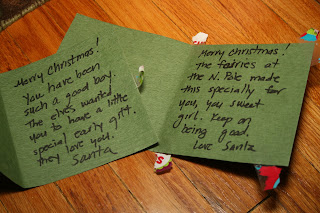 Merry Christmas!
You have been
such a good boy.
The elves wanted
you to have a little
special early gift.
they love you.
Santa
Merry Christmas!
The fairies at
the N. Pole made
this specially for
you, you sweet
girl. Keep on
being good.
Love Santa